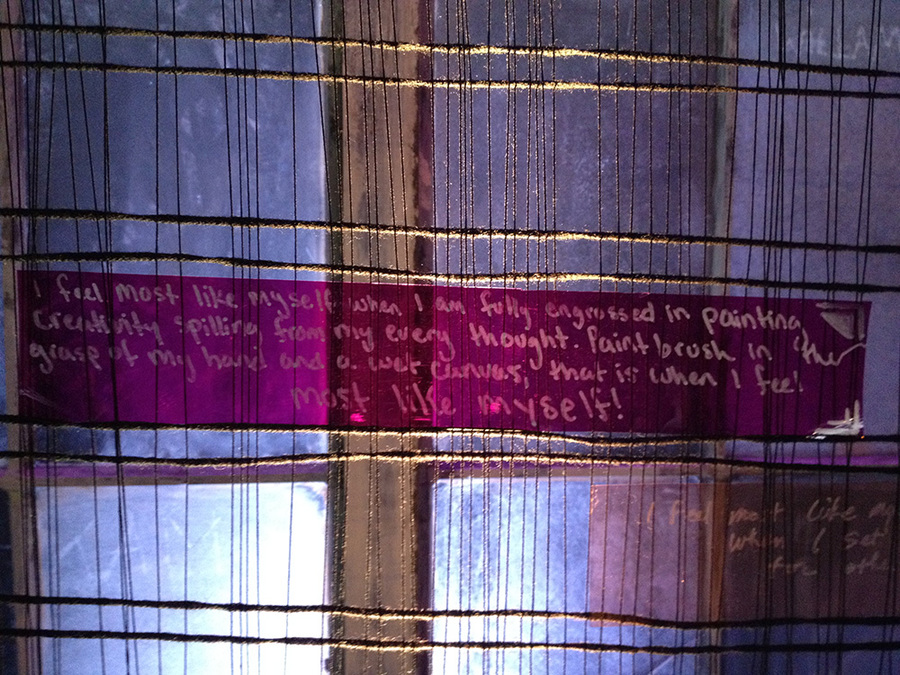 I feel most like myself when I am fully engrossed in painting,
Creativity spilling from my every thought. Paintbrush in the
grasp of my hand and a wet canvas, that is when I feel
most like myself!
I feel most like my
when I set
for